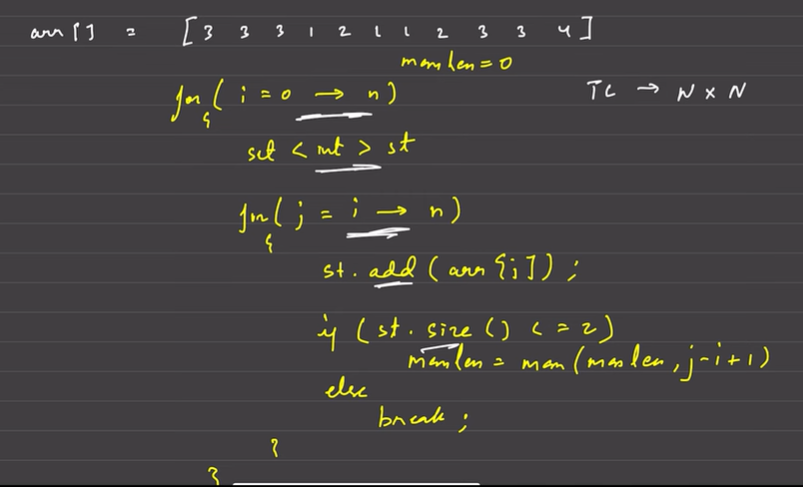 arr[] = [3 3 3 1 2 1 1 2 3 3 4]
maxlen = 0
for( i = 0 → n) TC → N x N
{
set < int > st
for( j = i → n)
{
st. add ( arr[j]) ;
if ( st. size () <= 2)
maxlen = max (maxlen, j-i+1)
else
break ;
}
}